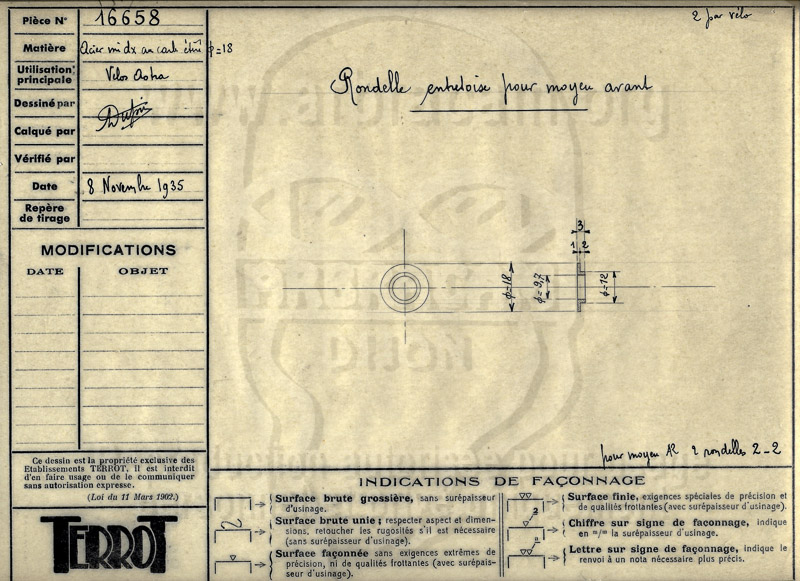 Pièce N° 16658
Matière Acier mi dx au carb étiré φ=18
Utilisation principale Vélos
Dessiné par
Calqué par
Vérifié par
Date 8 Novembre 1935
Repère de tirage
MODIFICATIONS
DATE OBJET
Ce dessin est la propriété exclusive des
Etablissements TERROT, il est interdit
d'en faire usage ou de le communiquer
sans autorisation expresse.
(Loi du 11 Mars 1902.)
TERROT
2 par vélo
Rondelle entretoise pour moyeu avant
3
1 2
φ=18
φ=9,7
φ=12
pour moyeu AR 2 rondelles 2_2
INDICATIONS DE FAÇONNAGE
Surface brute grossière, sans surépaisseur
d'usinage.
Surface brute unie ; respecter aspect et dimen-
sions, retoucher les rugosités s'il est nécessaire
(sans surépaisseur d'usinage).
Surface façonnée sans exigences extrêmes de
précision, ni de qualités frottantes (avec surépais-
seur d'usinage).
Surface finie, exigences spéciales de précision et
de qualités frottantes (avec surépaisseur d'usinage).
2
Chiffre sur signe de faconnage, indique
en m/m la surépaisseur d'usinage.
a
Lettre sur signe de façonnage, indique le
renvoi à un nota nécessaire plus précis.